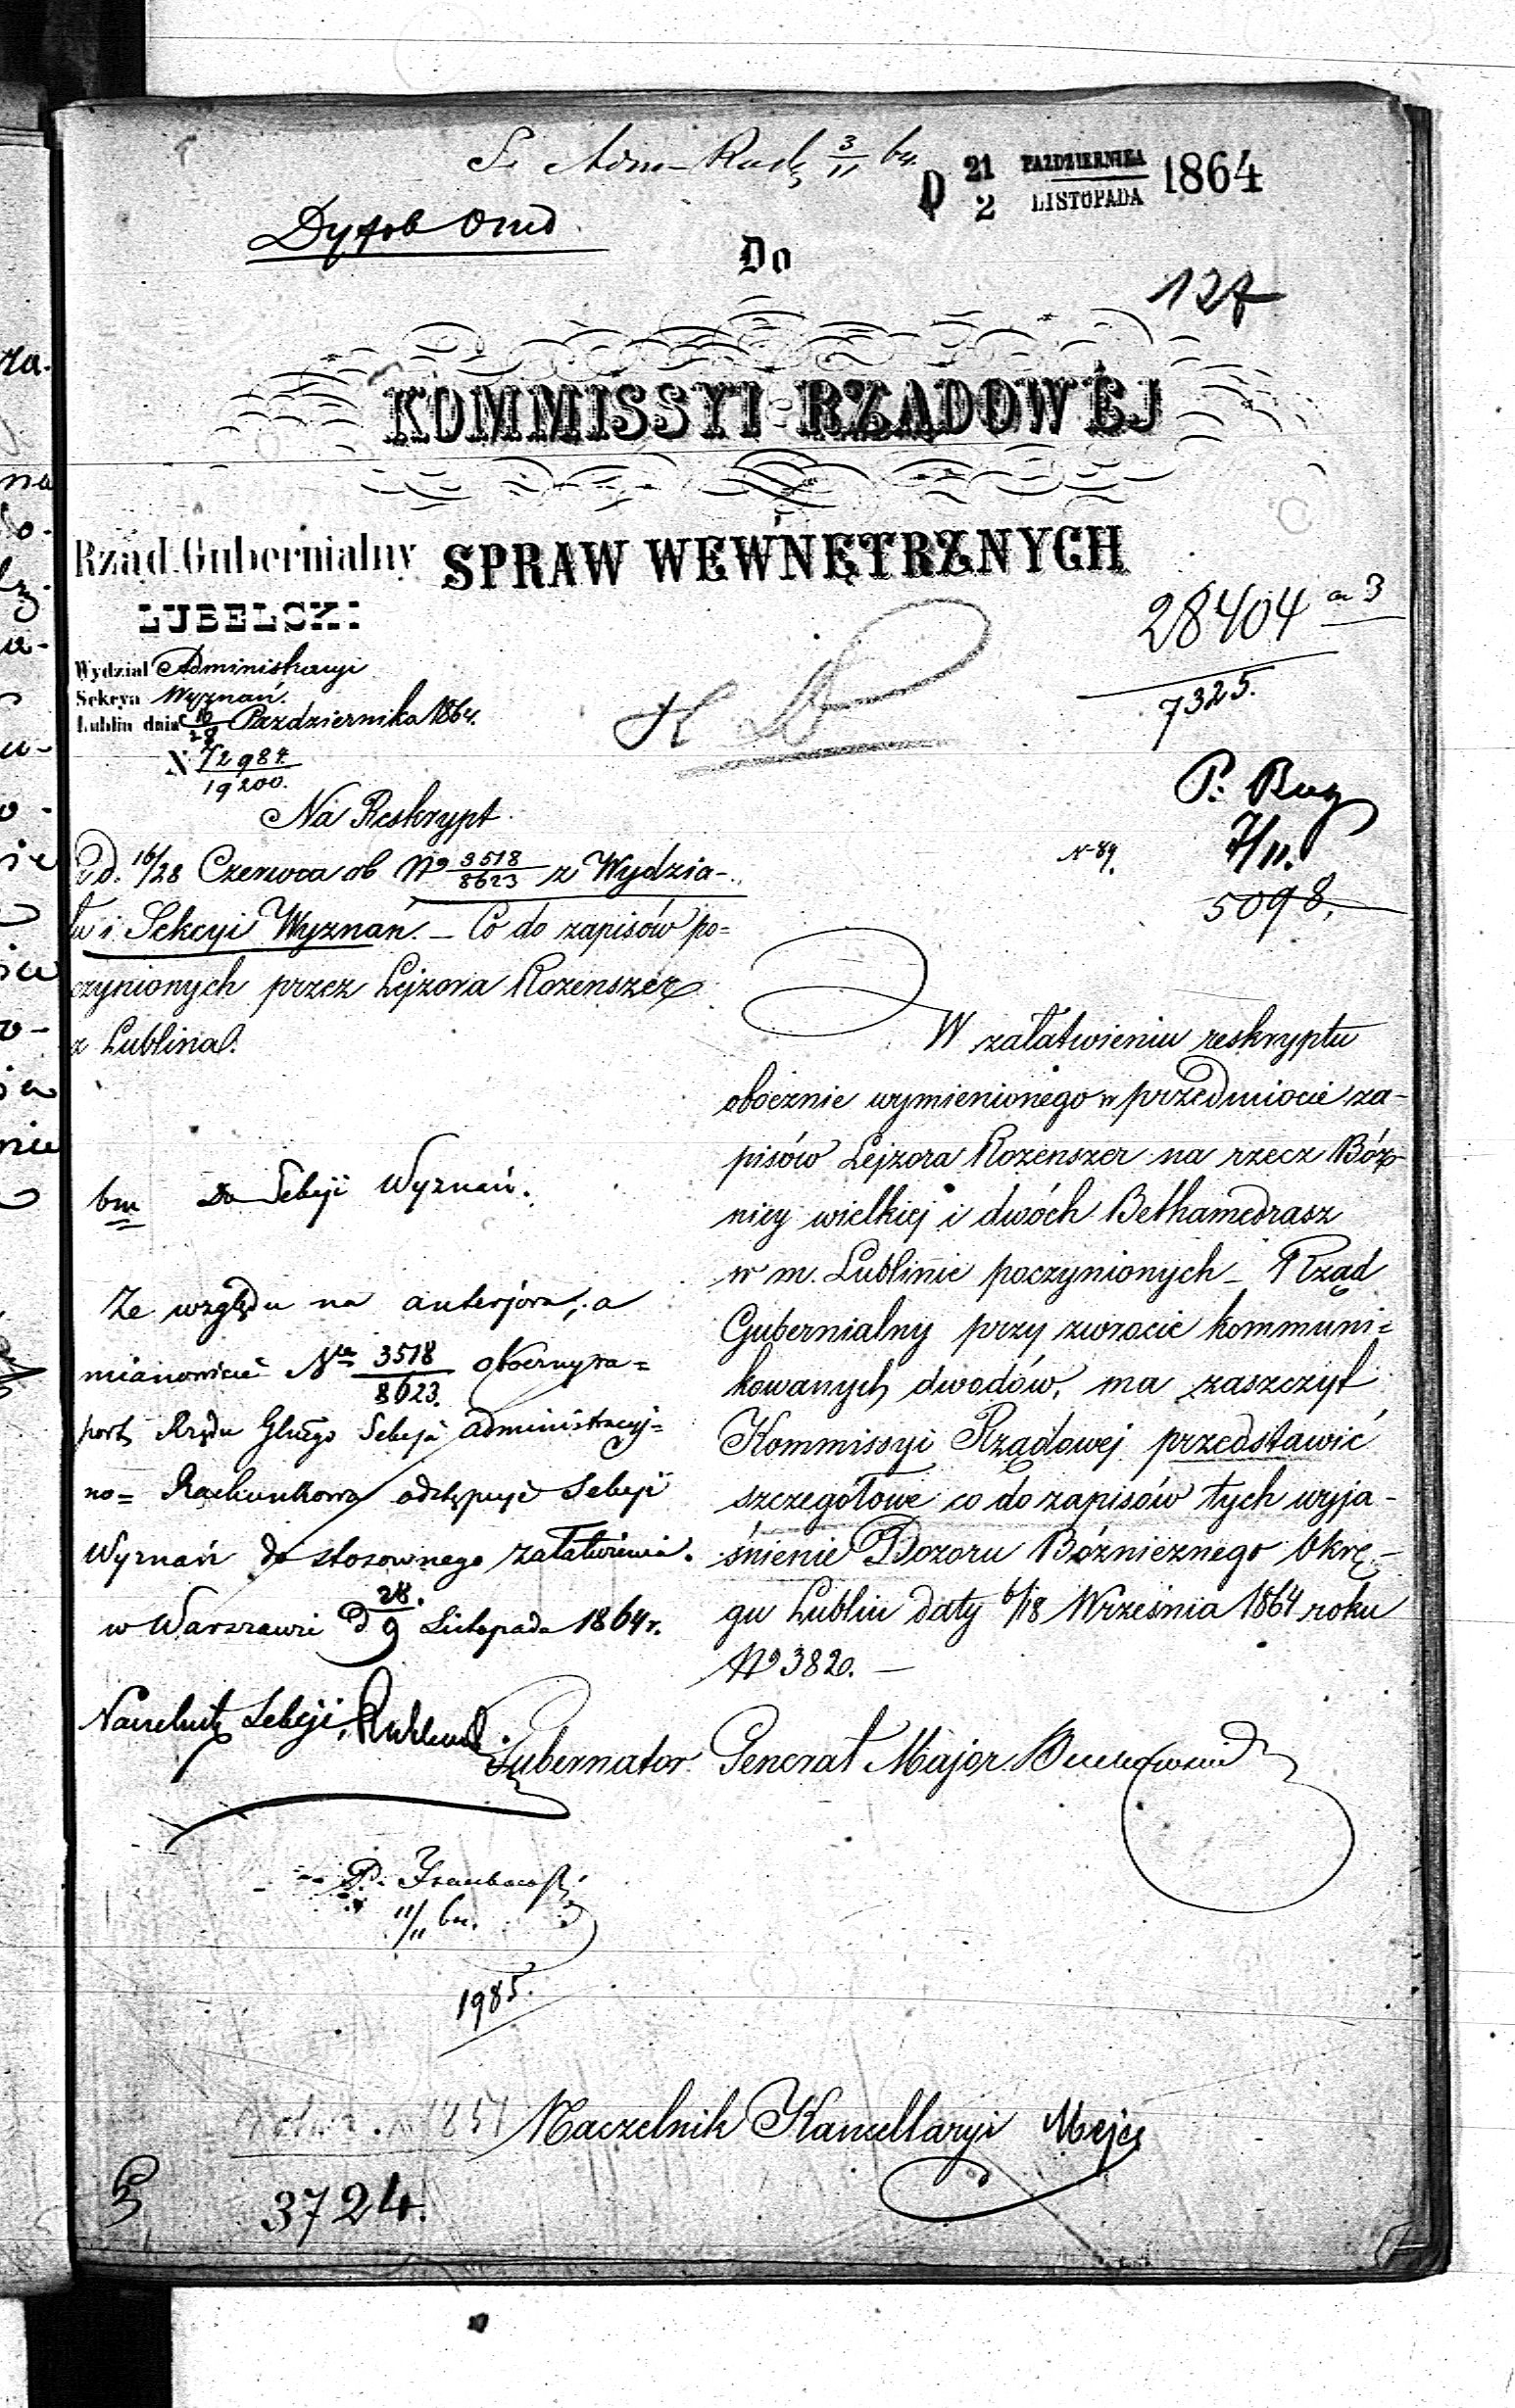 S. Adm-Rach 3/11 br.
D 21/2 PAZDZIERNIKA/LISTOPADA 1864
Do
127
KOMMISSYI RZĄDOWÉJ
SPRAW WEWNĘTRZNYCH
Rząd Gubernialny
LUBELSKI
Wydział Administracyi
Sekcya Wyznań.
Lublin dnia 16/28 Października 1864.
N. 72984/19200.
28404 a 3
7325.
P. Bug
7/11.
N 89.
5098.
Na Reskrypt
z d. 16/28 Czerwca rb No 3518/8623 z Wydzia-
łu i Sekcyi Wyznań. – Co do zapisów po=
czynionych przez Lejzora Rozenszer
z Lublina.
W załatwieniu reskryptu
obocznie wymienionego w przedmiocie za-
pisów Lejzora Rozenszer na rzecz Bóż-
nicy wielkiej i dwóch Bethamedrasz
w m. Lublinie poczynionych – Rząd
Gubernialny przy zwrocie kommuni=
kowanych dwodów, ma zaszczyt
Kommissyi Rządowej przedstawić
szczegółowe co do zapisów tych wyja-
śnienie Dozoru Bóżnicznego Okrę-
gu Lublin daty 6/18 Września 1864 roku
No 3820. –
Gubernator Generał Major
bm Do Sekcji Wyznań.
Ze względu na anterjora, a
mianowicie No 3518/8623. oboczny ra=
port Rządu Głnego Sekcja administracyj=
no= Rachunkowa odstępuje Sekcji
Wyznań do stosownego załatwienia.
w Warszawie d 28./9 Listopada 1864 r.
Naczelnik Sekcji,
P.
11/11 br.
1985.
Naczelnik Kancellaryi
3724.